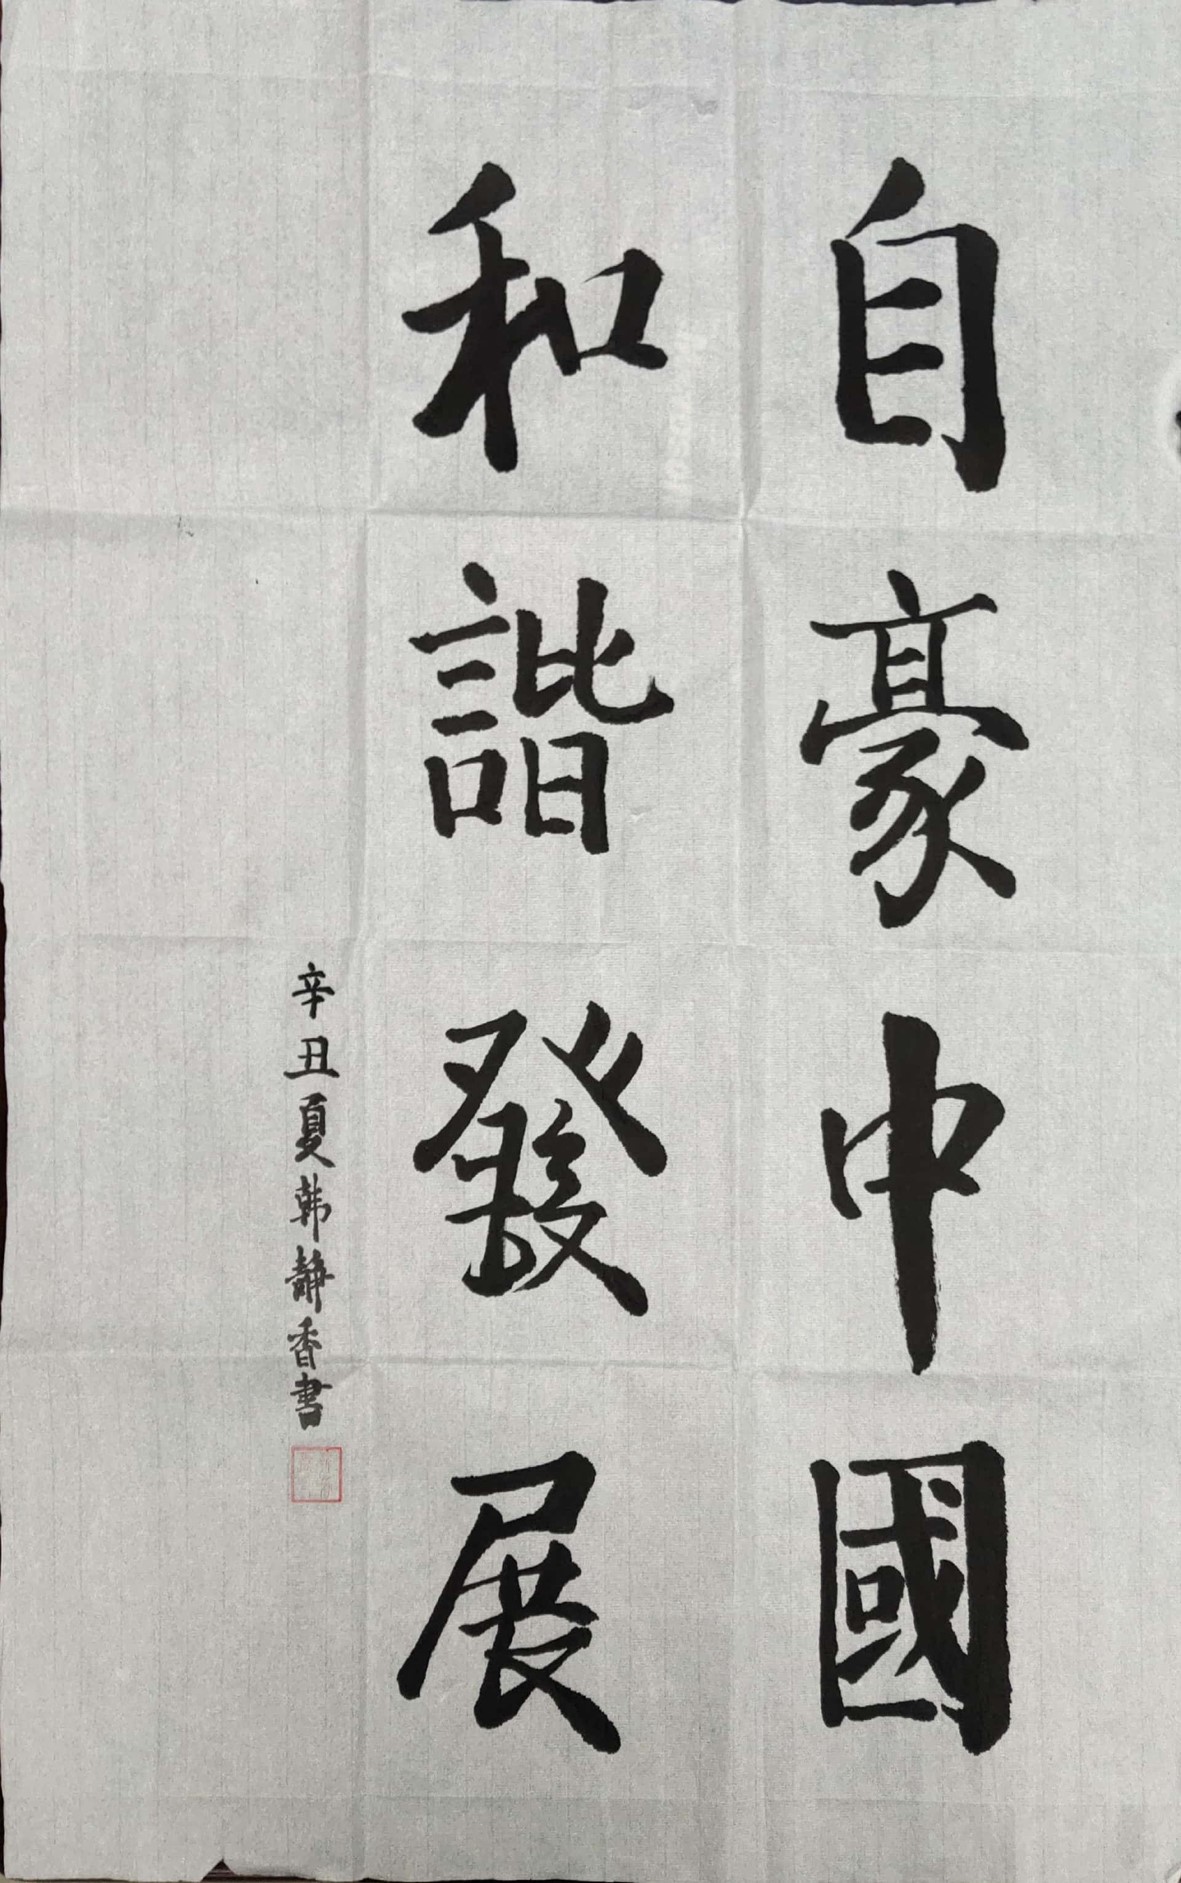 自豪中國
和諧發展
辛丑夏韩静香書